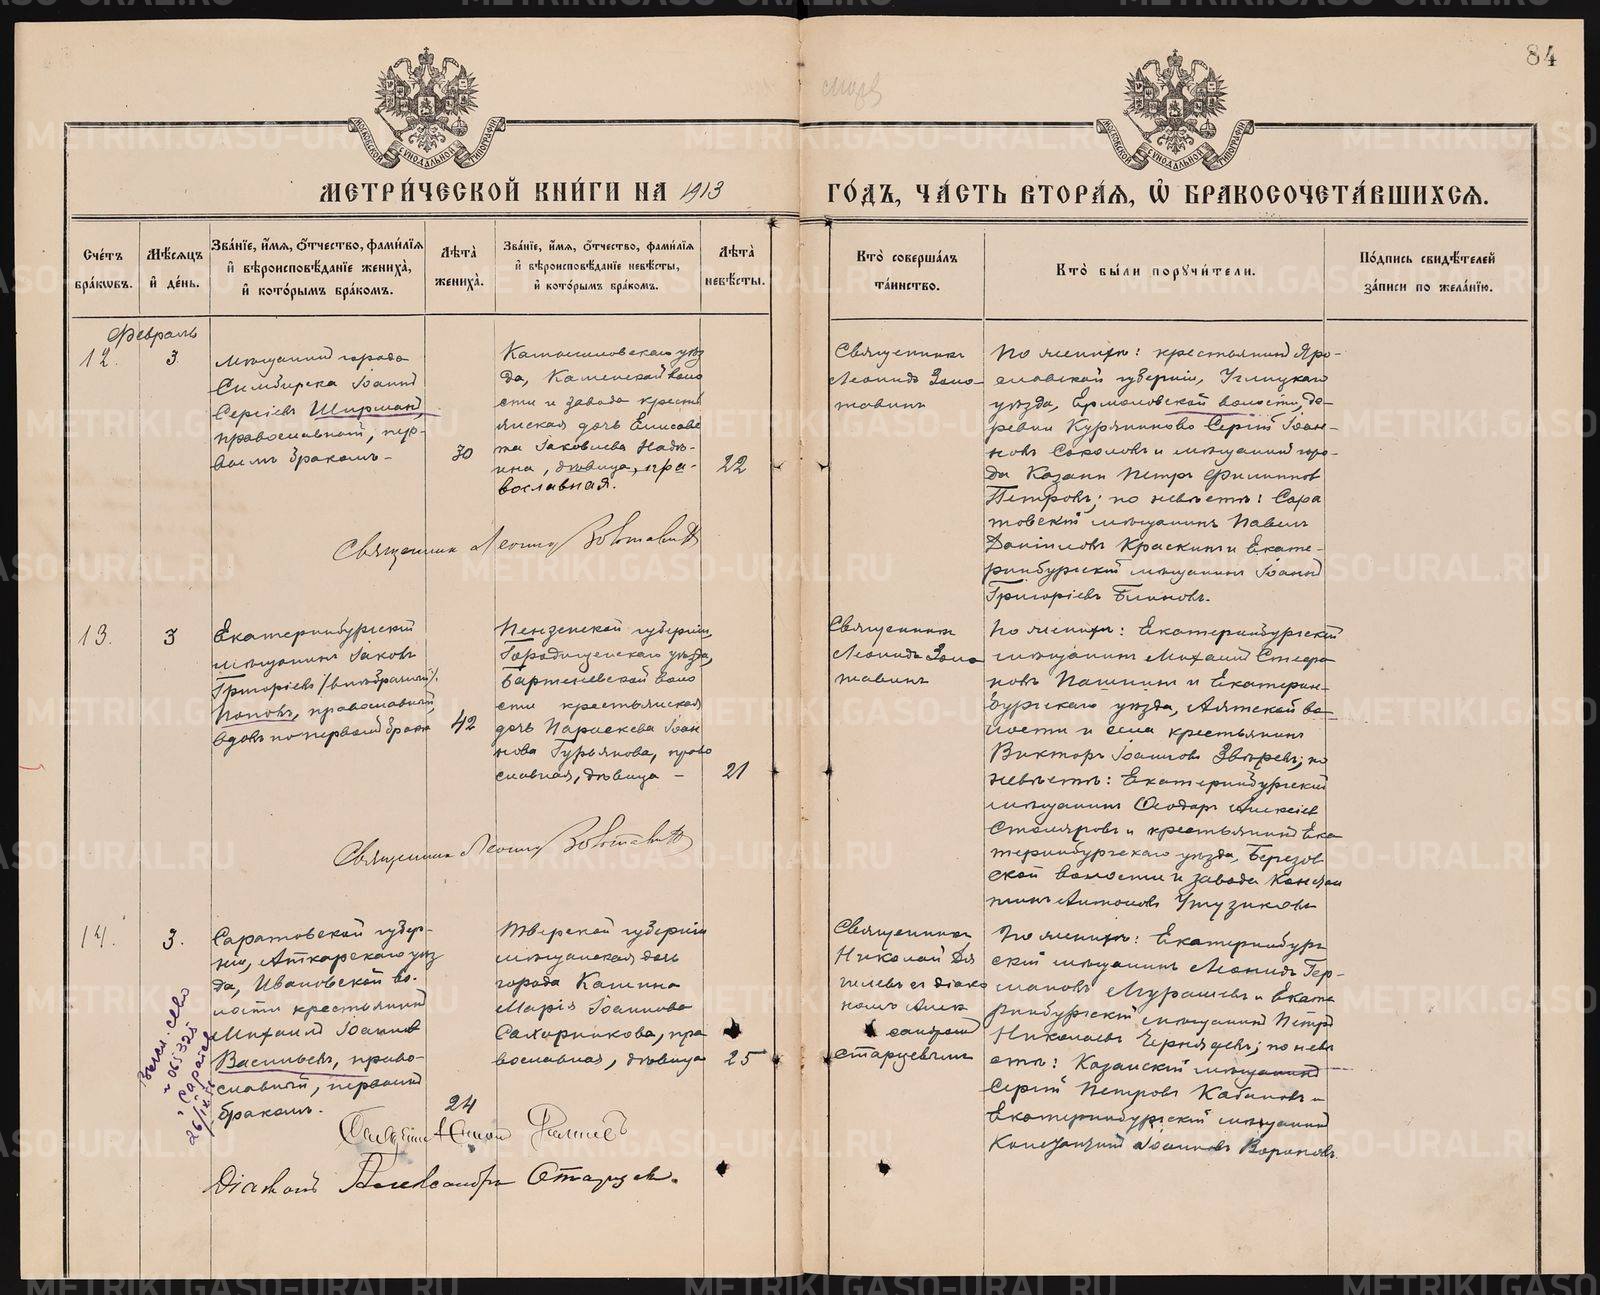 84
МЕТРИ́ЧЕСКОЙ КНИ́ГИ НА 1913
ГО́ДЪ, ЧА́СТЬ ВТОРА́Я, Ѽ БРАКОСОЧЕТА́ВШИХСЯ.
МОСКОВСКОЙ СѴНОДАЛЬНОЙ ТИПОГРАФІИ
МОСКОВСКОЙ СѴНОДАЛЬНОЙ ТИПОГРАФІИ
Сче́тъ бра́кѡвъ.
Мѣ́сяцъ и҆ де́нь.
Зва́нїе, и҆́мя, ѻ҆́тчество, фами́лїя и҆ вѣроисповѣ́данїе жениха̀, и҆ кото́рымъ бра́комъ.
Лѣта̀ жениха̀.
Зва́нїе, и҆́мя, ѻ҆́тчество, фами́лїя и҆ вѣроисповѣ́данїе невѣ́сты, и҆ кото́рымъ бра́комъ.
Лѣта̀ невѣ́сты.
Кто̀ соверша́лъ та́инство.
Кто̀ бы́ли порꙋчи́тели.
По́дпись свидѣ́телей за́писи по жела́нїю.
Февраль
12.
3.
мѣщанинъ города
Симбирска Іоаннъ
Сергіевъ Ширманъ
православный, пер-
вымъ бракомъ-
30
уѣз
да, Каменской воло
сти и завода кресть
янская дочь Елисаве
та Іаковлева
, дѣвица, пра-
вославная.
22
Священникъ
Леонидъ Золо-
тавинъ
По женихѣ: крестьянинъ Яро-
славской губерніи, Углицкаго
уѣзда, Ермоловской волости, де-
ревни Курянинова Сергій Іоан-
новъ Соколовъ и мѣщанинъ горо-
да Казани Петръ Филипповъ
Петровъ; по невѣстѣ: Сара
товскій мѣщанинъ Павелъ
Даніиловъ Краскинъ и Екате-
ринбургскій мѣщанинъ Іоаннъ
Григоріевъ Блиновъ.
Священникъ Леонид Золотавин
13.
3
Екатеринбургскій
мѣщанинъ Іаковъ
Григоріевъ (внѣбрачный)
Поповъ, православный,
вдовъ по первомъ бракѣ
42
Пензенской губерніи,
Городищенскаго уѣзда,
воло
сти крестьянская
дочь Параскева Іоан
нова Гурьянова, право
славная, дѣвица -
21
Священникъ
Леонидъ Золо
тавинъ
По женихѣ: Екатеринбургскій
мѣщанинъ Михаилъ Стефа
новъ Пашнинъ и Екатерин-
бургскаго уѣзда, Аятской во-
лости и села крестьянинъ
Викторъ Іоанновъ Звѣревъ; по
невѣстѣ: Екатеринбургскій
мѣщанинъ Ѳеодоръ Алексіевъ
Столяровъ и крестьянинъ Ека
теринбургскаго уѣзда, Березов
ской волости и завода Констан
тинъ Антоновъ
Священникъ Леонид Золотавин
14.
3.
Саратовской губер-
ніи, Аткарскаго уѣз
да, Ивановской во-
лости крестьянинъ
Михаилъ Іоанновъ
Васильевъ, право-
славный, первымъ
бракомъ.
24
Тверской губерніи
мѣщанская дочь
города Кашина
Марія Іоаннова
Сахарникова, пра
вославная, дѣвица
25
Священникъ
Николай
съ діако
номъ Алек
сандромъ
Старцевымъ
По женихѣ: Екатеринбург
скій мѣщанинъ Леонидъ Гер-
мановъ Мурашевъ и Екате
ринбургскій мѣщанинъ Петръ
Николаевъ Чернядевъ; по невѣ
стѣ: Казанскій мѣщанинъ
Сергій Петровъ Кабановъ и
Екатеринбургскій мѣщанинъ
Іоанновъ Вороновъ.
26/IX
Діаконъ Александръ Старцевъ.
METRIKI.GASO-URAL.RU